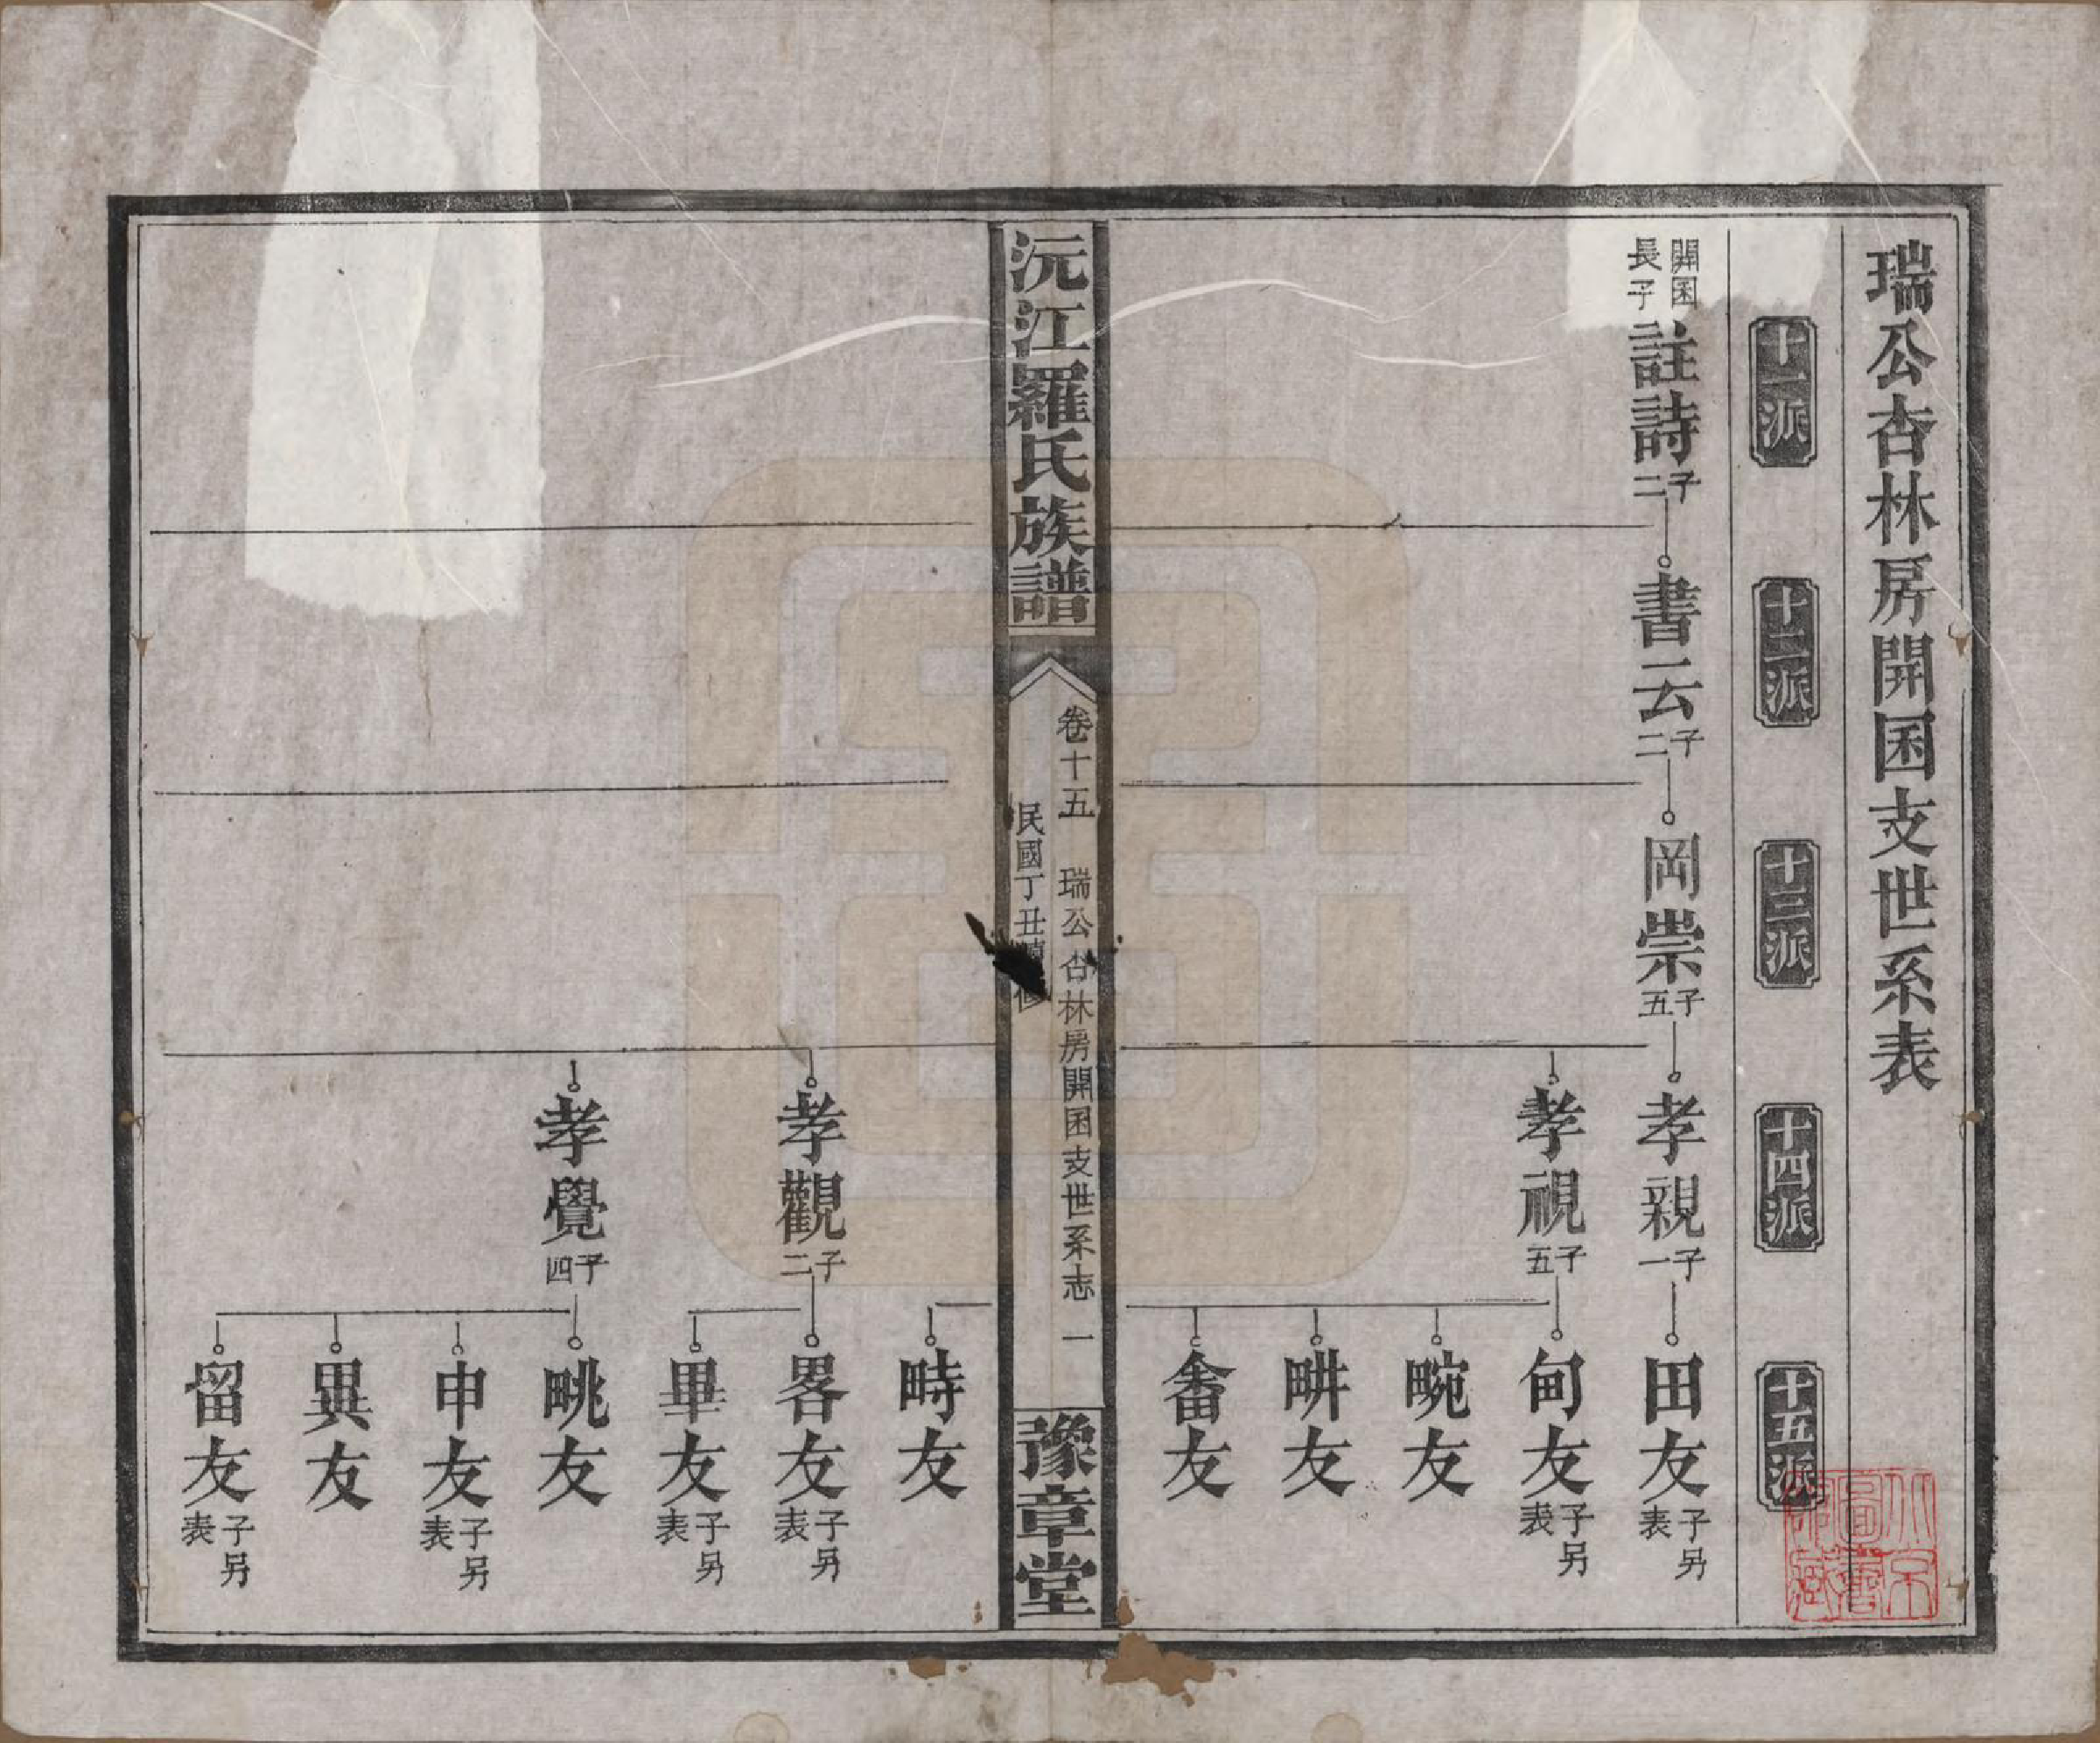 瑞公杏林房開囷支世系表
十一派
十二派
十三派
十四派
十五派
開囷長子
註詩 子二
書云 子二
岡崇 子五
孝親 子一
田友 子另表
孝視 子五
甸友 子另表
畹友
畊友
畬友
沅江羅氏族譜
卷十五 瑞公杏林房開囷支世系志 一
民國丁丑續修
豫章堂
畤友
孝觀 子二
畧友 子另表
畢友 子另表
孝覺 子四
畂友
申友 子另表
異友
留友 子另表